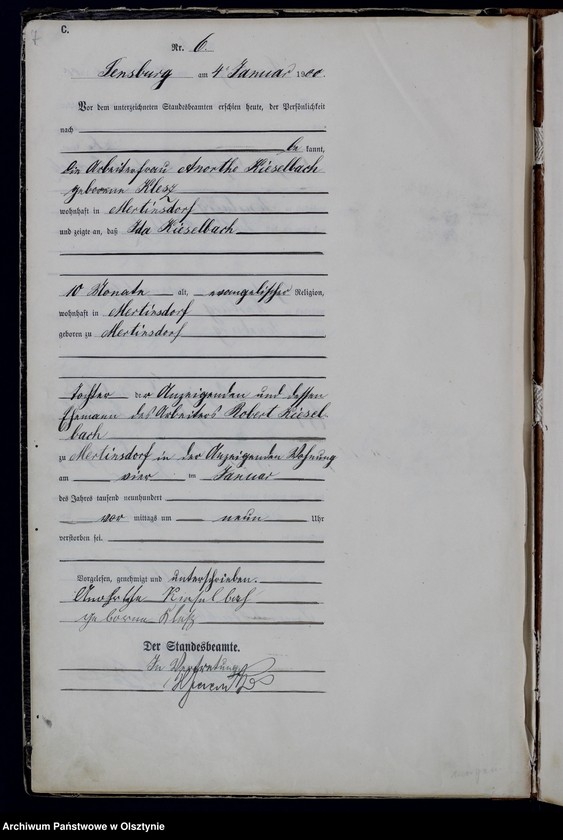 C.
Nr. 6.
Sensburg am 4. Januar 1900.
Vor dem unterzeichneten Standesbeamten erschien heute, der Persönlichkeit
nach
be kannt,
die Arbeiterfrau Anorthe Kieselbach
geborene Klesz
wohnhaft in Mertinsdorf
und zeigte an, daß Ida Kieselbach
10 Monate alt, evangelischer Religion,
wohnhaft in Mertinsdorf
geboren zu Mertinsdorf
Tochter der Anzeigenden und dessen
Ehemann des Arbeiters Robert Kiesel-
bach
zu Mertinsdorf in der Anzeigenden Wohnung
am vier ten Januar
des Jahres tausend neunhundert
vor mittags um neun Uhr
verstorben sei.
Vorgelesen, genehmigt und unterschrieben.
Kieselbach
geborene Klesz
Der Standesbeamte.
In Vertretung
Archiwum Państwowe w Olsztynie